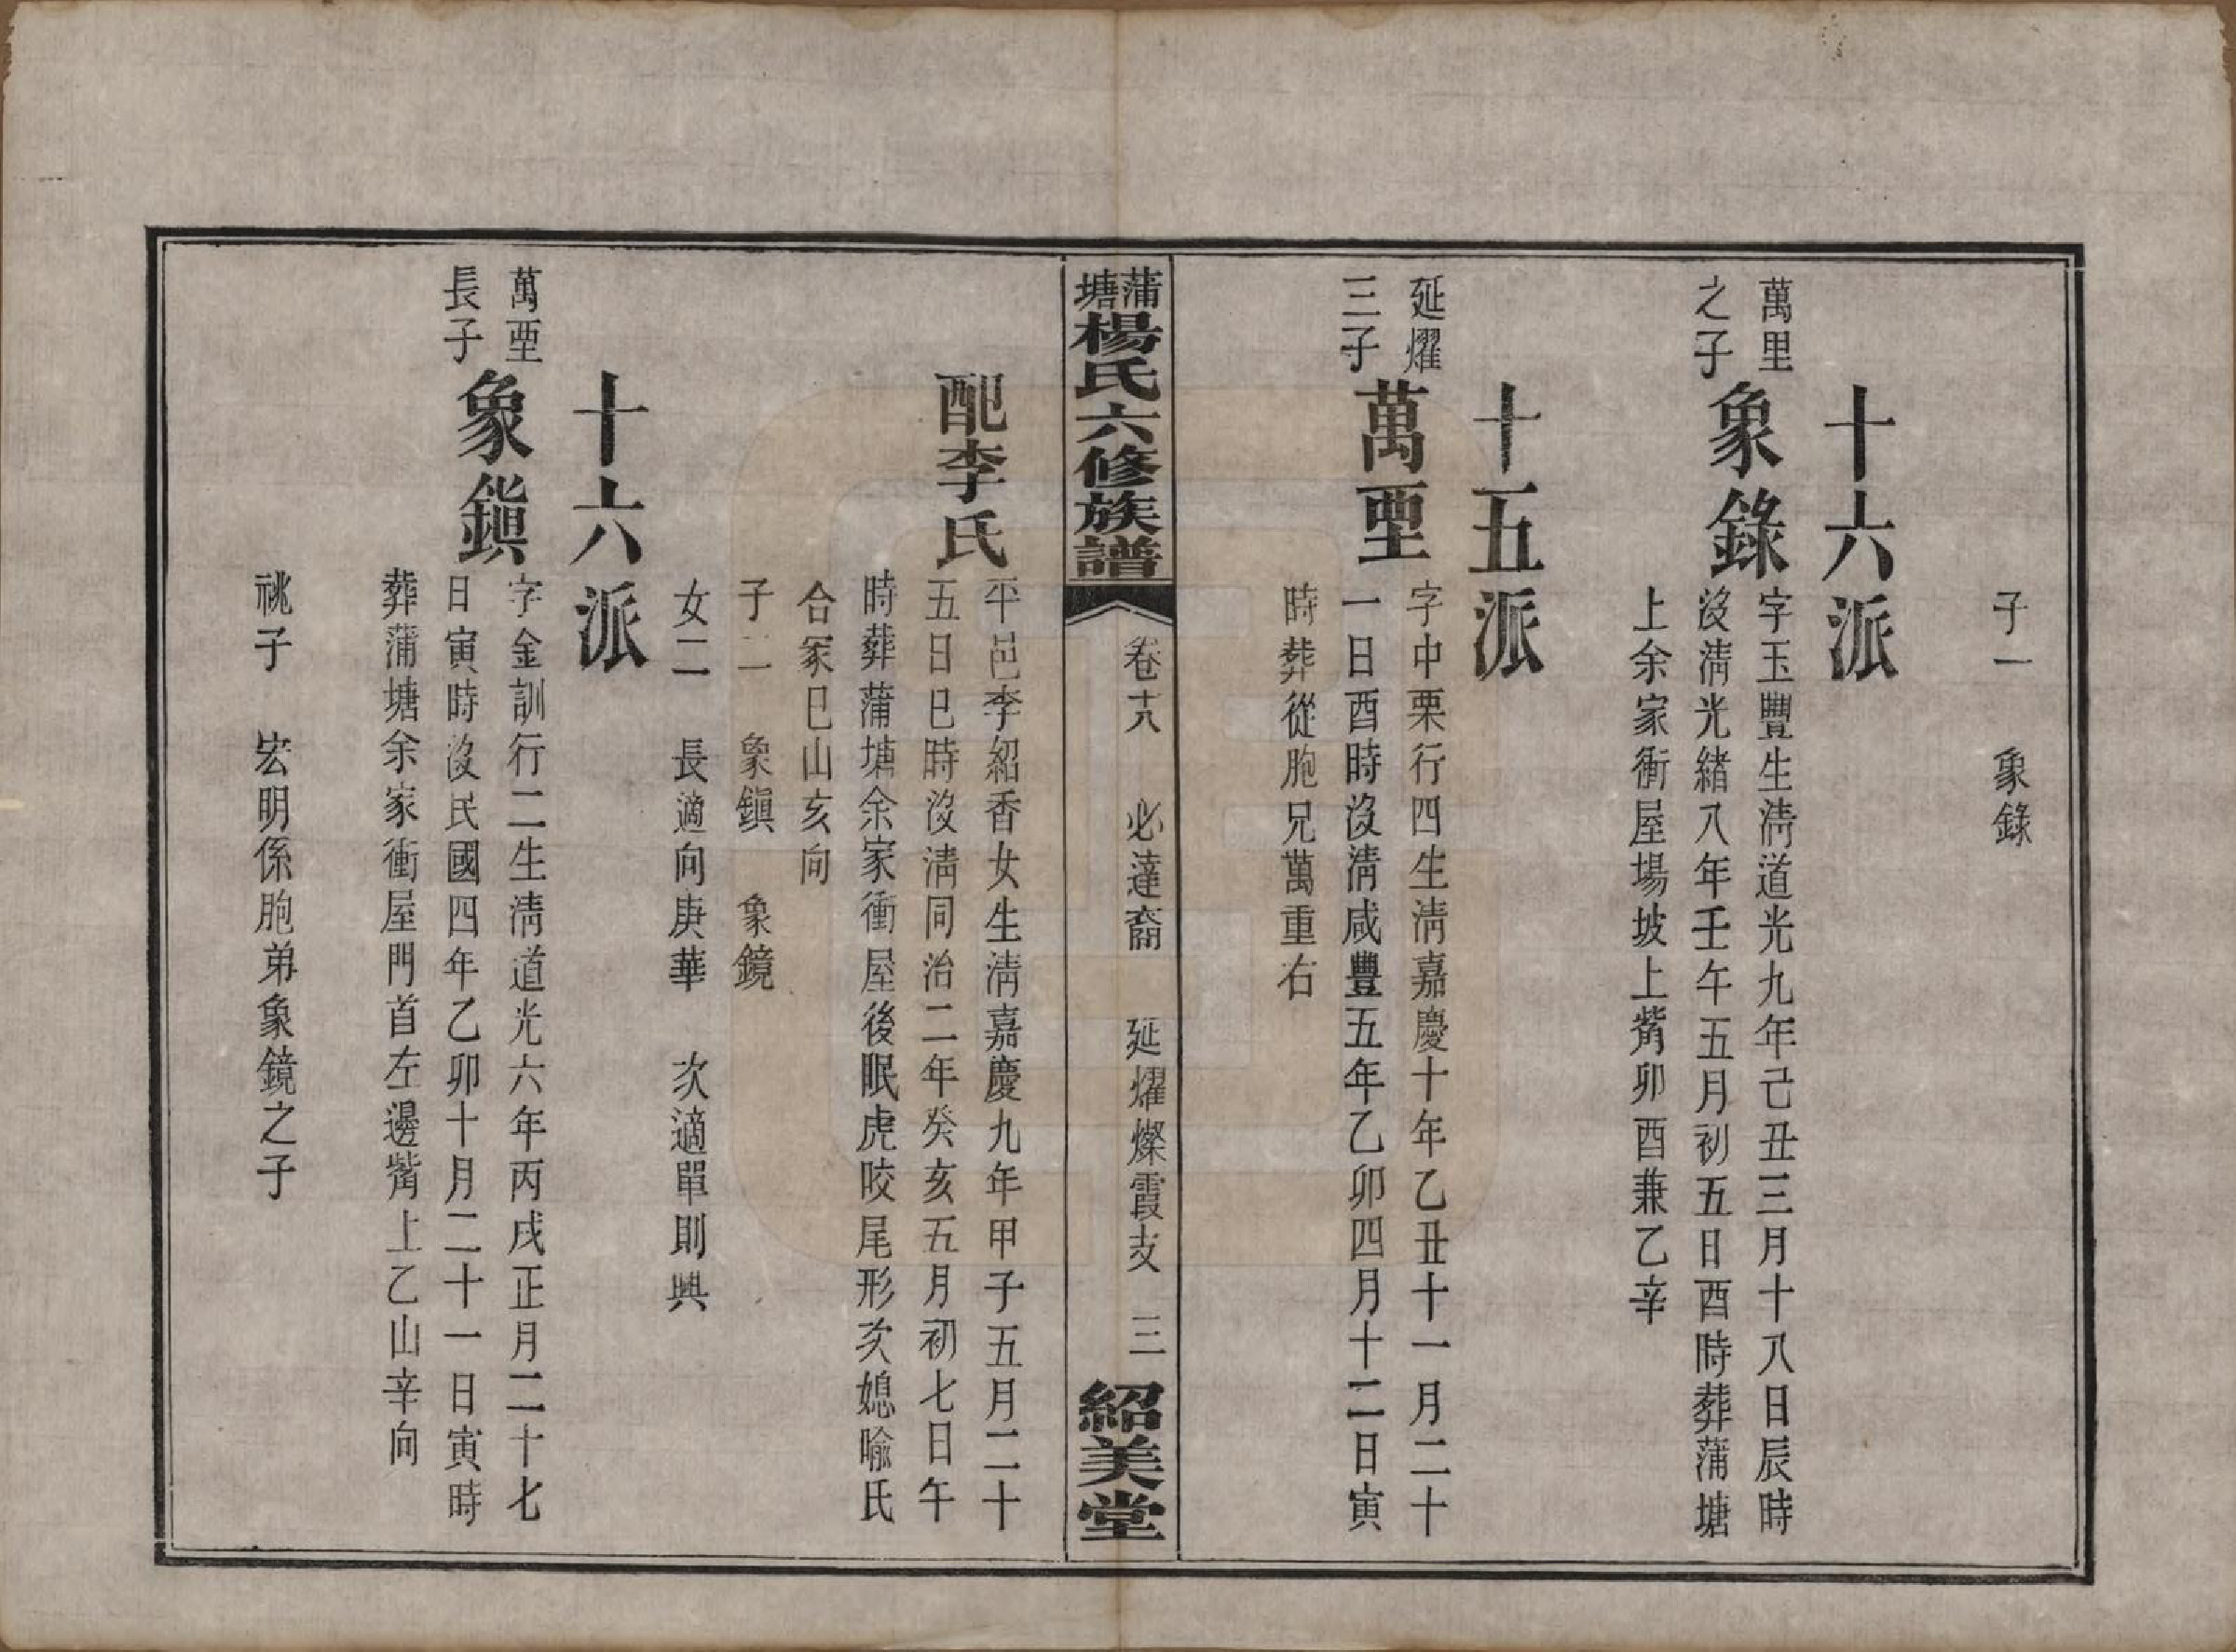 子一　象錄
十六派
萬里之子
象錄
字玉豐生淸道光九年己丑三月十八日辰時
沒淸光緒八年壬午五月初五日酉時葬蒲塘
上余家衝屋場坡上觜卯酉兼乙辛
十五派
延燿三子
萬垔
字中栗行四生淸嘉慶十年乙丑十一月二十
一日酉時沒淸咸豐五年乙卯四月十二日寅
時葬從胞兄萬重右
蒲塘楊氏六修族譜　卷十八　必達裔　延燿燦霞支　三　紹美堂
配李氏
平邑李紹香女生淸嘉慶九年甲子五月二十
五日巳時沒淸同治二年癸亥五月初七日午
時葬蒲塘余家衝屋後眠虎咬尾形次媳喻氏
合冢巳山亥向
子二　象鎭　象鏡
女二　長適向庚華　次適單則興
十六派
萬垔長子
象鎭
字金訓行二生淸道光六年丙戌正月二十七
日寅時沒民國四年乙卯十月二十一日寅時
葬蒲塘余家衝屋門首左邊觜上乙山辛向
祧子　宏明係胞弟象鏡之子